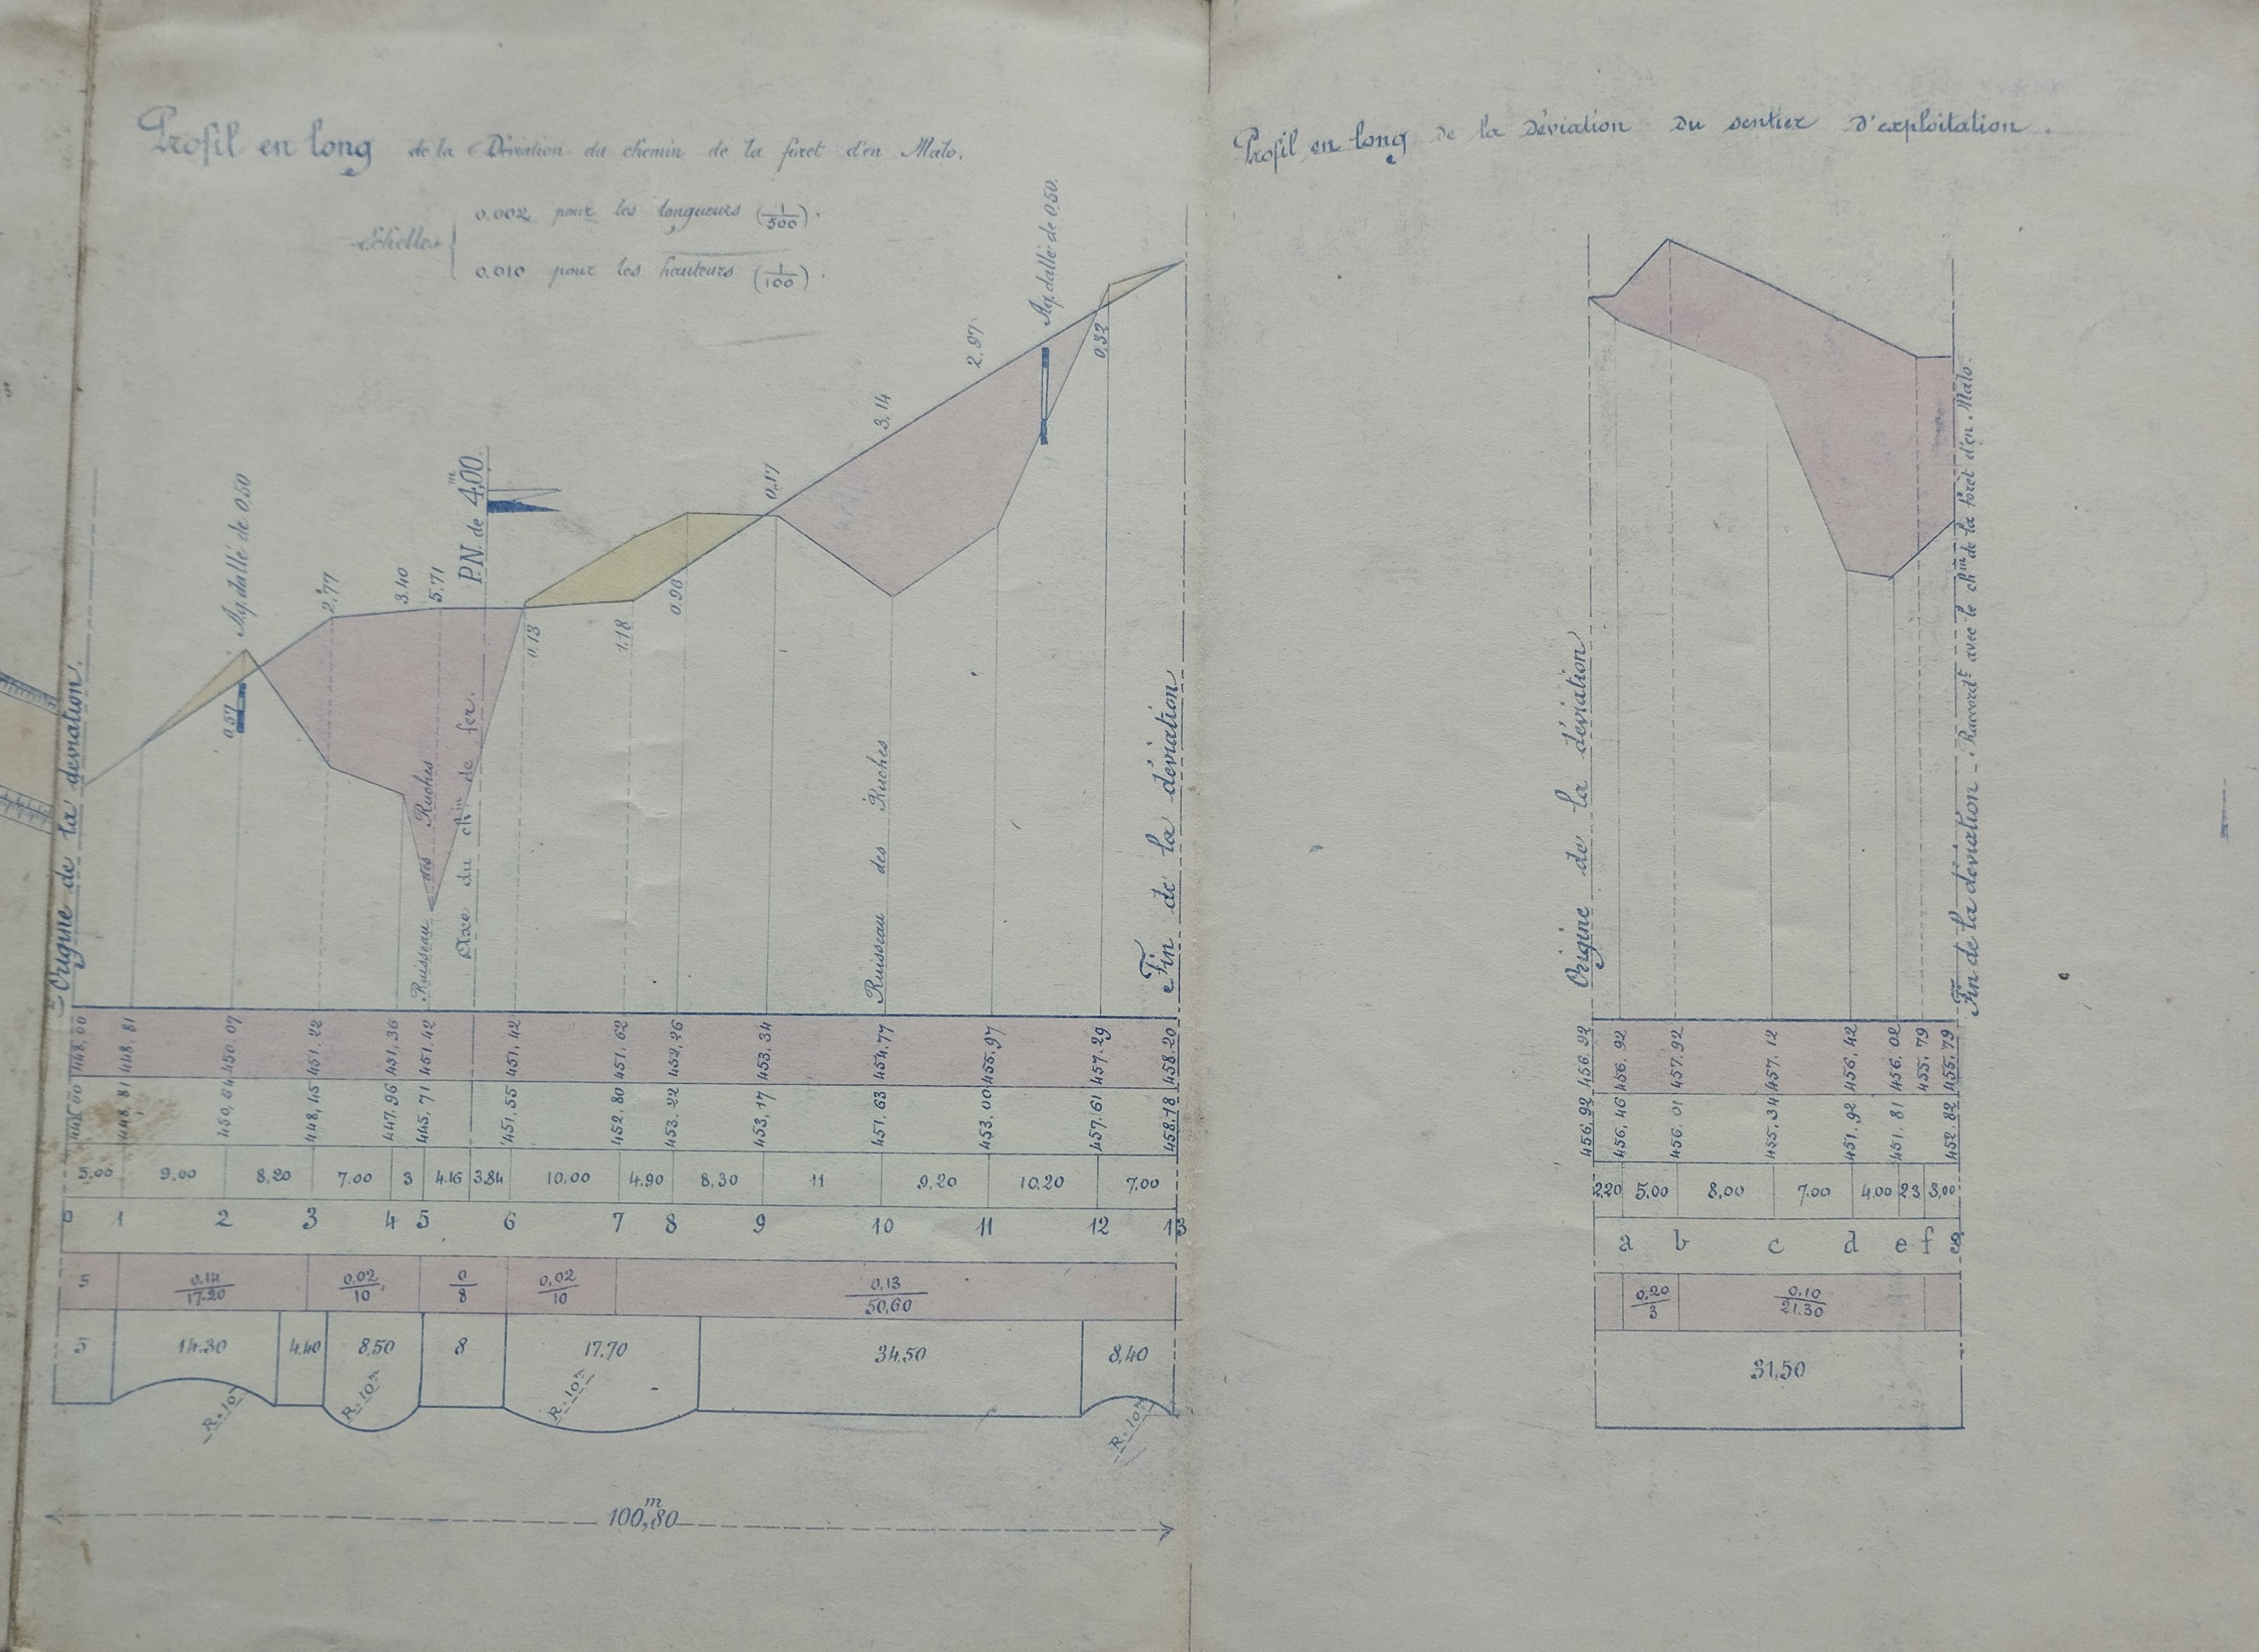 Profil en long de la Déviation du chemin de la foret d'en Malo.
Echelles { 0.002 pour les longueurs (1/500).
0.010 pour les hauteurs (1/100).
Origine de la déviation.
Aq. dallé de 0,50
0,57
2,77
3.40
5.71
P.N. de 4,00.m
0,13
1,18
0,96
0,17
3.14
2.97
Aq. dallé de 0,50.
0,32
Ruisseau des Ruches
Axe du chin de fer.
Ruisseau des Ruches
Fin de la déviation
448,00 448,81 450,07 451.22 451,36 451,42 451,42 451.62 452,26 453.34 454.77 455,97 457.29 458.20
448,00 448,81 450,64 448,45 447.96 445,71 451.55 452,80 453.22 453,17 451,63 453,00 457.61 458.18
5.00 9.00 8,20 7.00 3 4.16 3.84 10,00 4.90 8,30 11 9,20 10.20 7.00
0 1 2 3 4 5 6 7 8 9 10 11 12 13
5 0.14/17.20 0,02/10 0/8 0,02/10 0,13/50,60
5 14.30 4,40 8,50 8 17.70 34.50 8,40
R=10m R=10m R=10m R=10m
100,80m
Profil en long de la Déviation du sentier d'exploitation.
Origine de la déviation
Fin de la déviation _ Raccordt avec le chin de la foret d'en Malo.
456.92 456.92 457.92 457,12 456,42 456.02 455.79 455.79
456,92 456,46 456.01 455,34 451.92 451.81 452.82
2.20 5.00 8,00 7.00 4.00 2.3 3,00
a b c d e f g
0,20/3 0,10/21.30
31,50